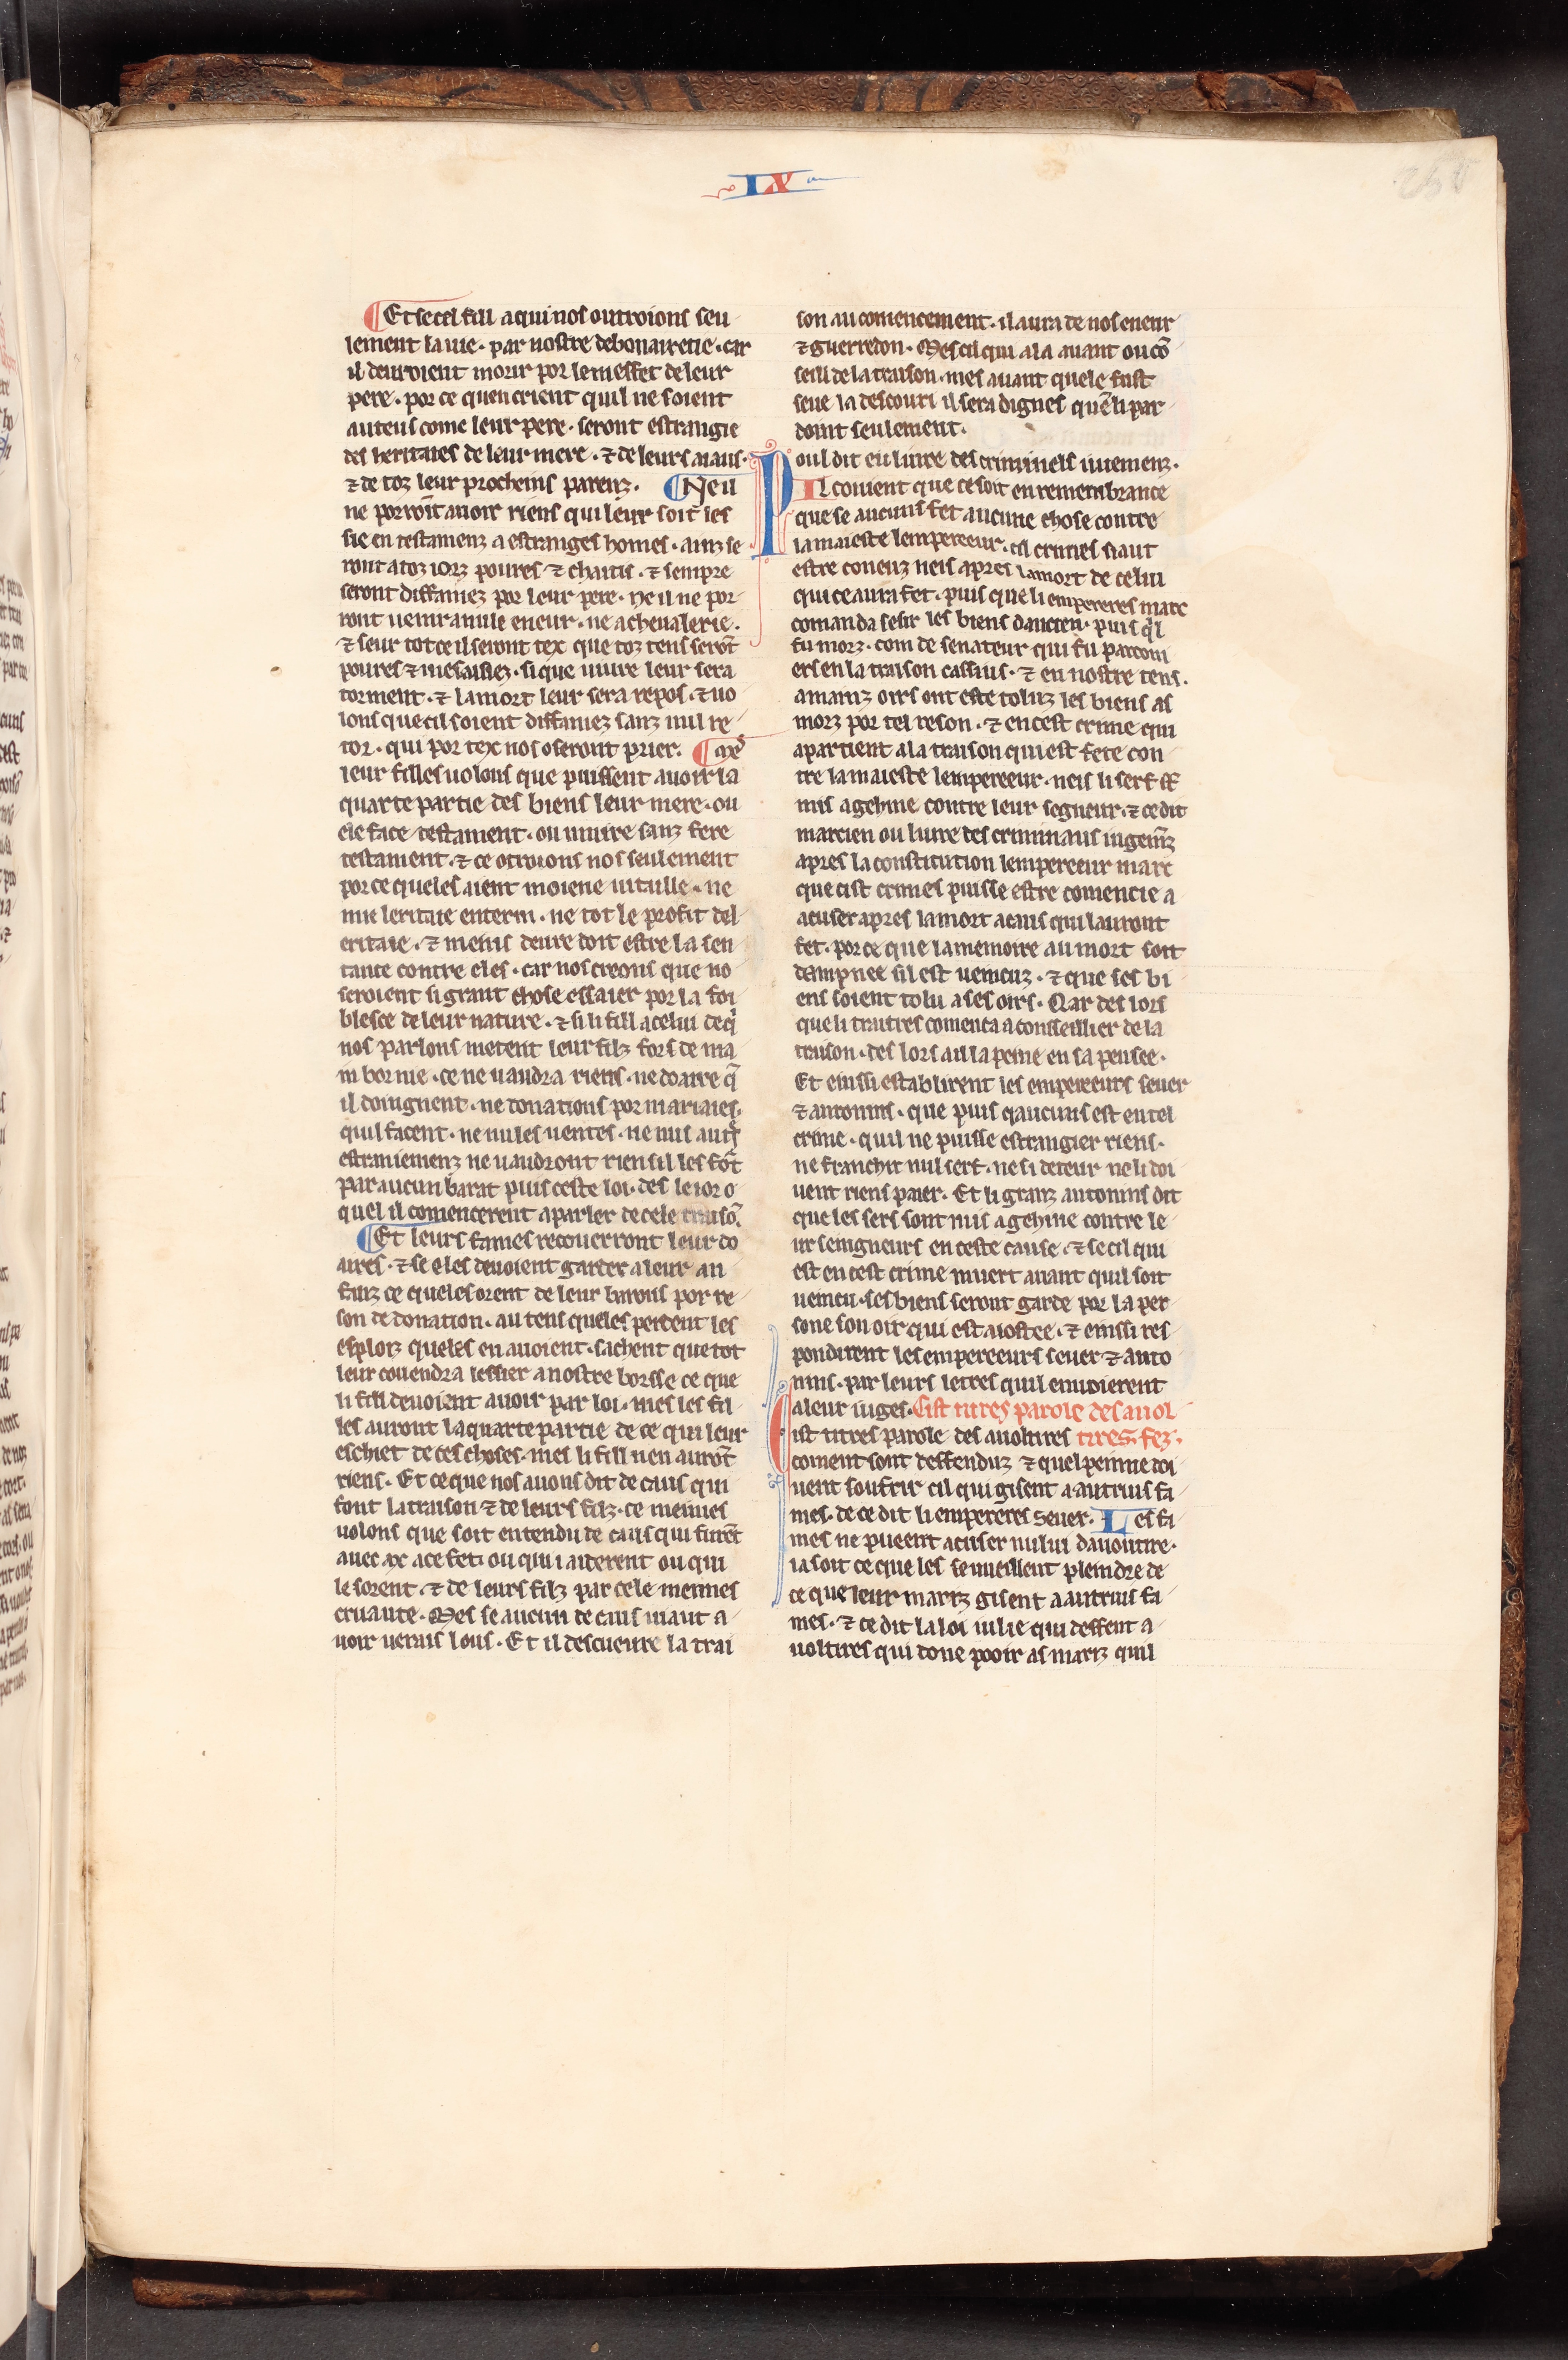 IX
Et se cel fill a qui nos outroions seu
lement la uie · par nostre debonairetie · car
il deuroient morir por le meffet de leur
pere · por ce quen crient quil ne soient
auteus come leur pere · seront estrangie
des heritaies de leur mere · ⁊ de leurs aiaus ·
⁊ de toz leur procheins parenz · Ne u
ne porrōit auoir riens qui leur soit les
sie en testamenz a estranges homes · ainz se
ront a toz iorz poures ⁊ chaitis · ⁊ sempre
seront diffamez por leur pere · ne il ne por
ront uenir a nule eneur · ne a cheualerie ·
⁊ seur tot ce il seront tex que toz tens serōt
poures ⁊ mesaisiez · si que uiure leur sera
torment · ⁊ la mort leur sera repos · ⁊ uo
lons que cil soient diffamez sanz nul re
tor · qui por tex nos oseront prier · a ces
leur filles uolons que puissent auoir la
quarte partie des biens leur mere · ou
ele face testament · ou muire sanz fere
testament · ⁊ ce otroions nos seulement
por ce queles aient moiene uitaille · ne
mie leritaie enterin · ne tot le profit del
eritaie · ⁊ meins deure doit estre la sen
tance contre eles · car nos creons que no
seroient si grant chose essaier por la foi
blesce de leur nature · ⁊ si li fill a celui de q̄
nos parlons metent leur filz fors de ma
in bornie · ce ne uaudra riens · ne doarre q̄
il doingnent · ne donations por mariaies
quil facent · ne nules uentes · ne nus autr̄
estraniemenz ne uaudront rien sil les fōt
par aucun barat puis ceste loi · des le ior o
quel il comencerent a parler de cele traisō
Et leurs fames recouerront leur do
aires · ⁊ se eles deuoient garder a leur an
fanz ce queles orent de leur barons por re
son de donation · au tens queles perdent les
esploiz queles en auoient · sachent que tot
leur couendra lessier a nostre borsse ce que
li fill deuoient auoir par loi · mes les fil
les auront la quarte partie de ce qui leur
eschiet de ces choses · mes li fill nen aurōt
riens · Et ce que nos auons dit de caus qui
font la traison ⁊ de leurs filz · ce meimes
uolons que soit entendu de caus qui furēt
auec ax a ce fet · ou qui i aiderent ou qui
le sorent · ⁊ de leurs filz par cele meimes
cruaute · Mes se aucun de caus uiaut a
uoir uerais lous · Et il descueure la trai
son au comencement · il aura de nos eneur
⁊ guerredon · Mes cil qui a la auant ou cō
seill de la traison · mes auant quele fust
seue la descouri il sera dignes quē li par
doint seulement ·
Poul dit eu liure des criminels iutemenz ·
Il couient que ce soit en remembrance
que se aucuns fet aucune chose contre
la maieste lempereeur · cil cruiels siaut
estre coneuz neis apres la mort de celui
qui ce aura fet · puis que li empereres marc
comanda sesir les biens dancien · puis q̄l
fu morz · com de senateur qui fu parcom
ers en la traison cassius · ⁊ en nostre tens ·
a mainz oirs ont este toluz les biens as
morz por tel reson · ⁊ en cest crime qui
apartient a la traison qui est fete con
tre la maieste lempereeur · neis li serf st̄
mis a gehine contre leur segneur · ⁊ ce dit
marcien ou liure des criminaus iugem̄z
apres la constitution lempereeur marc
que cist crimes puisse estre comencie a
acuser apres la mort a caus qui lauront
fet · por ce que la memoire au mort soit
dampnee sil est ueincuz · ⁊ que ses bi
ens soient tolu a ses oirs · Qar des lors
que li traitres comenca a conseillier de la
traison · des lors a il la peine en sa pensee ·
Et einssi establirent les empereeurs seuer
⁊ antonins · que puis qaucuns est en tel
crime · quil ne puisse estrangier riens ·
ne franchir nul serf · ne si deteur ne li doi
uent riens paier · Et li granz antonins dit
que les sers sont mis a gehine contre le
ur seingneurs en ceste cause · ⁊ se cil qui
est en cest crime muert auant quil soit
ueincu · ses biens seront garde por la per
sone son oir qui est aiostee · ⁊ einssi res
pondirent les empereeurs seuer ⁊ anto
nins · par leurs letres quil enuoierent
a leur iuges · Cist titres parole des auol
Cist titres parole des auoltires tires · fez ·
coment sont deffenduz ⁊ quel peinne doi
uent soufrir cil qui gisent a autrui fa
mes · de ce dit li empereres Seuer · Les fa
mes ne pueent acuser nului dauoutire ·
ia soit ce que les se uueillent pleindre de
ce que leur mariz gisent a autrui fa
mes · ⁊ ce dit la loi iulie qui deffent a
uoltires qui done pooir as mariz quil